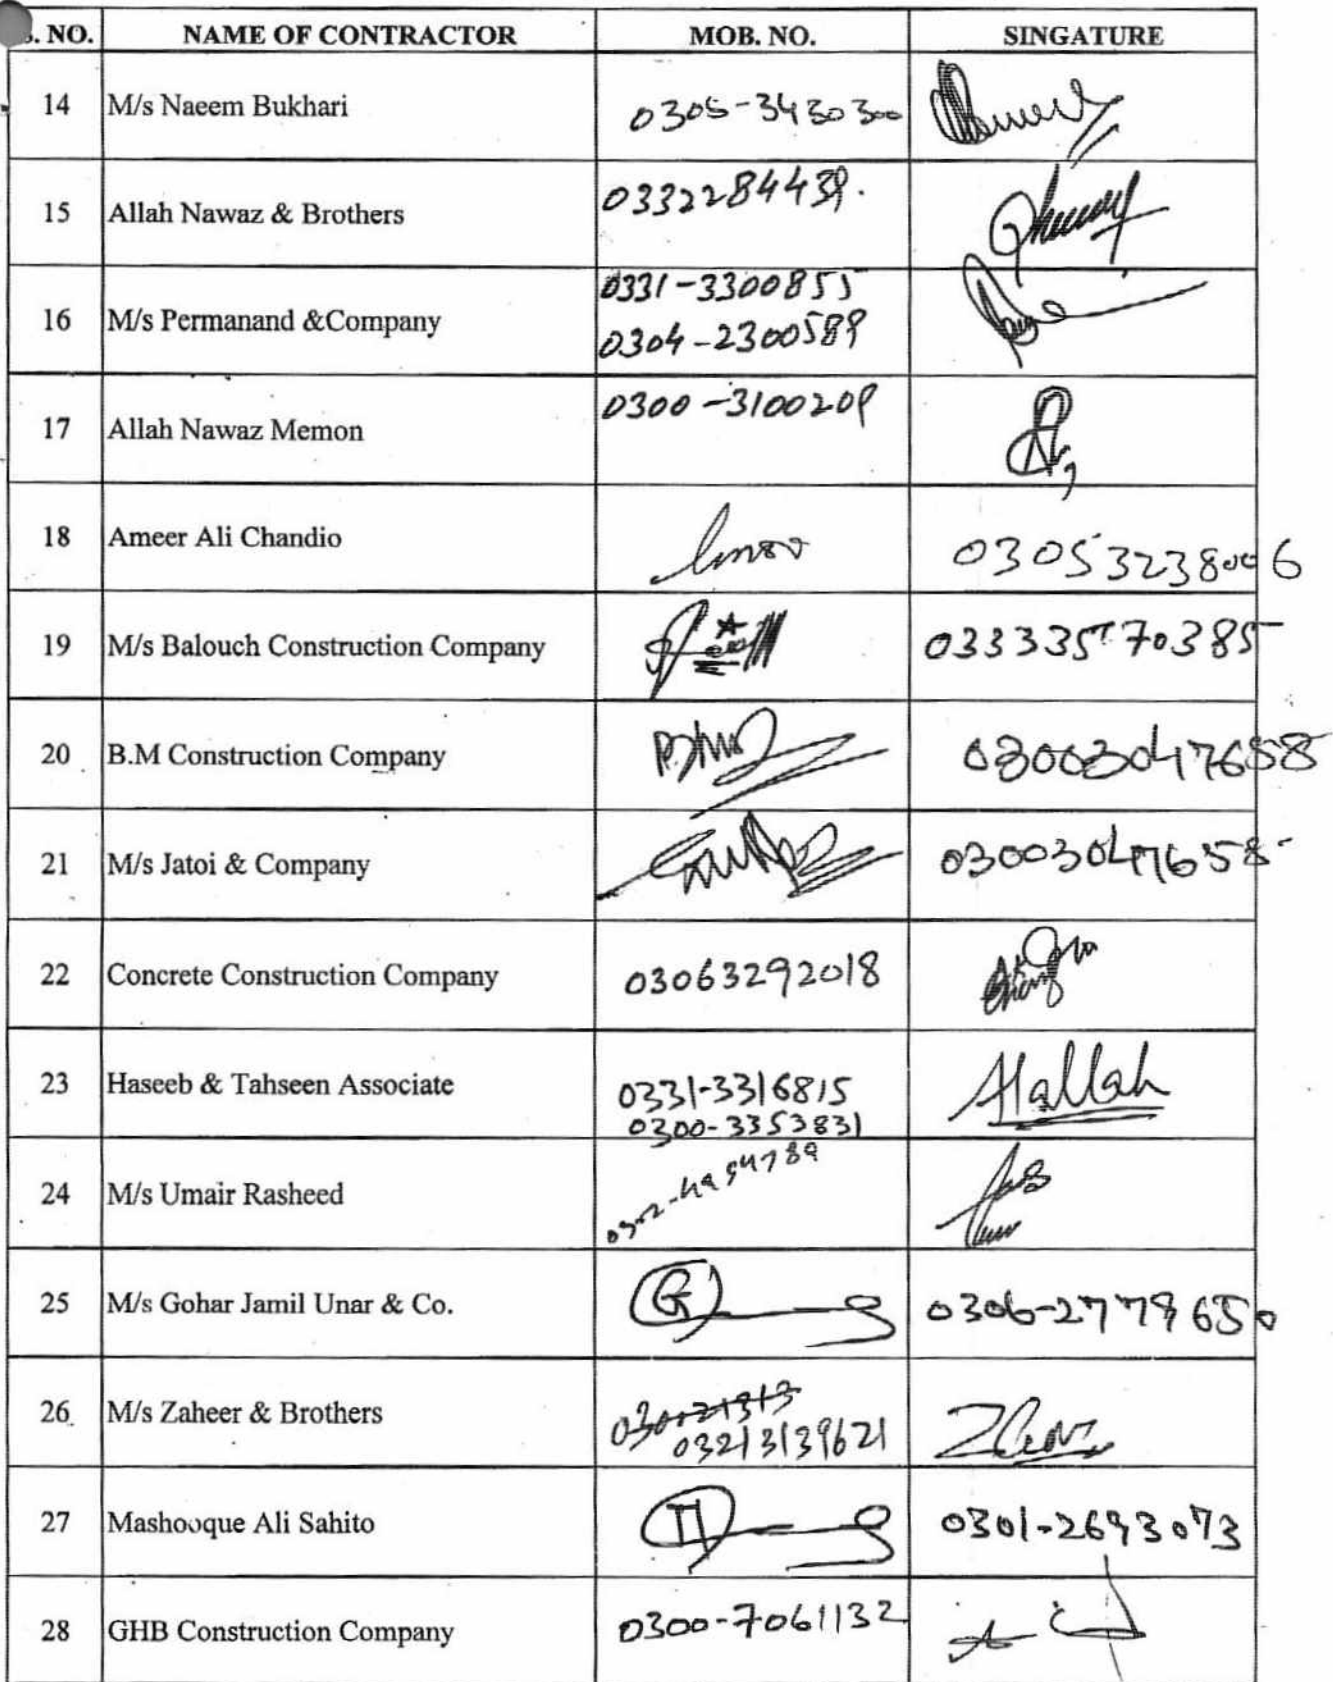 . NO. NAME OF CONTRACTOR MOB. NO. SINGATURE
14 M/s Naeem Bukhari 0305-3430300
15 Allah Nawaz & Brothers 0332284439.
16 M/s Permanand &Company 0331-3300855
0304-2300589
17 Allah Nawaz Memon 0300-3100209
18 Ameer Ali Chandio 03053238006
19 M/s Balouch Construction Company 03333570385
20 B.M Construction Company 03003047658
21 M/s Jatoi & Company 03003047658
22 Concrete Construction Company 03063292018
23 Haseeb & Tahseen Associate 0331-3316815
0300-3353831
24 M/s Umair Rasheed
25 M/s Gohar Jamil Unar & Co. 0306-2779650
26 M/s Zaheer & Brothers
03213139621
27 Mashooque Ali Sahito 0301-2693073
28 GHB Construction Company 0300-7061132